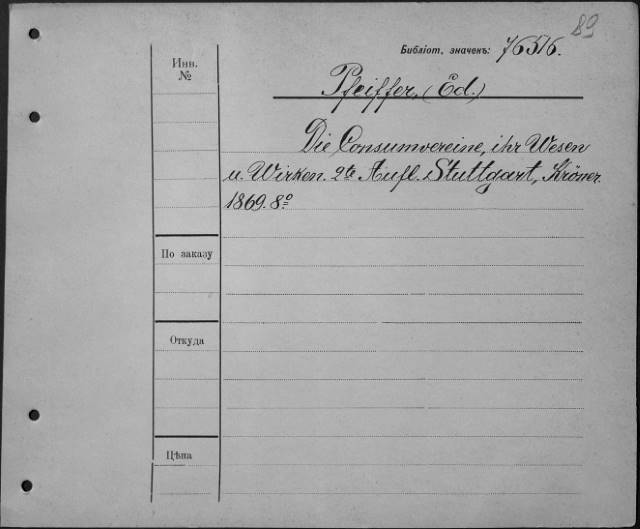 89
Библіот. значекъ: 76516.
Инв.
№
Pfeiffer, (Ed.)
Die Consumvereine, ihr Wesen
u. Wirken. 2te Aufl. Stuttgart, Kröner.
1869. 8º
По заказу
Откуда
Цѣна